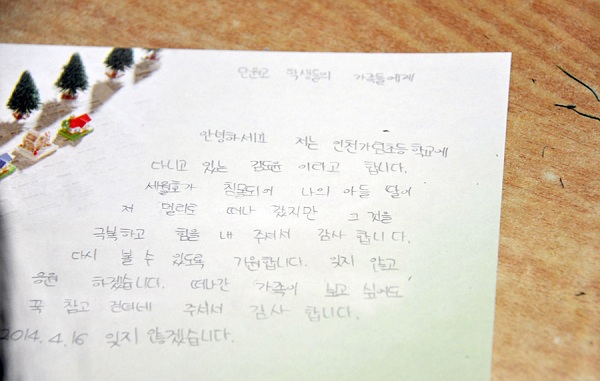 단원고 학생들의 가족들에게
안녕하세요 저는 인천가현초등학교에
다니고 있는 김도윤 이라고 합니다.
세월호가 침몰되어 나의 아들 딸이
저 멀리로 떠나 갔지만 그 것을
극복하고 힘을 내 주셔서 감사 합니다.
다시 볼 수 있도록 기원합니다. 잊지 않고
응원 하겠습니다. 떠나간 가족이 보고 싶어도
꾹 참고 견뎌내 주셔서 감사 합니다.
2014.4.16 잊지 않겠습니다.